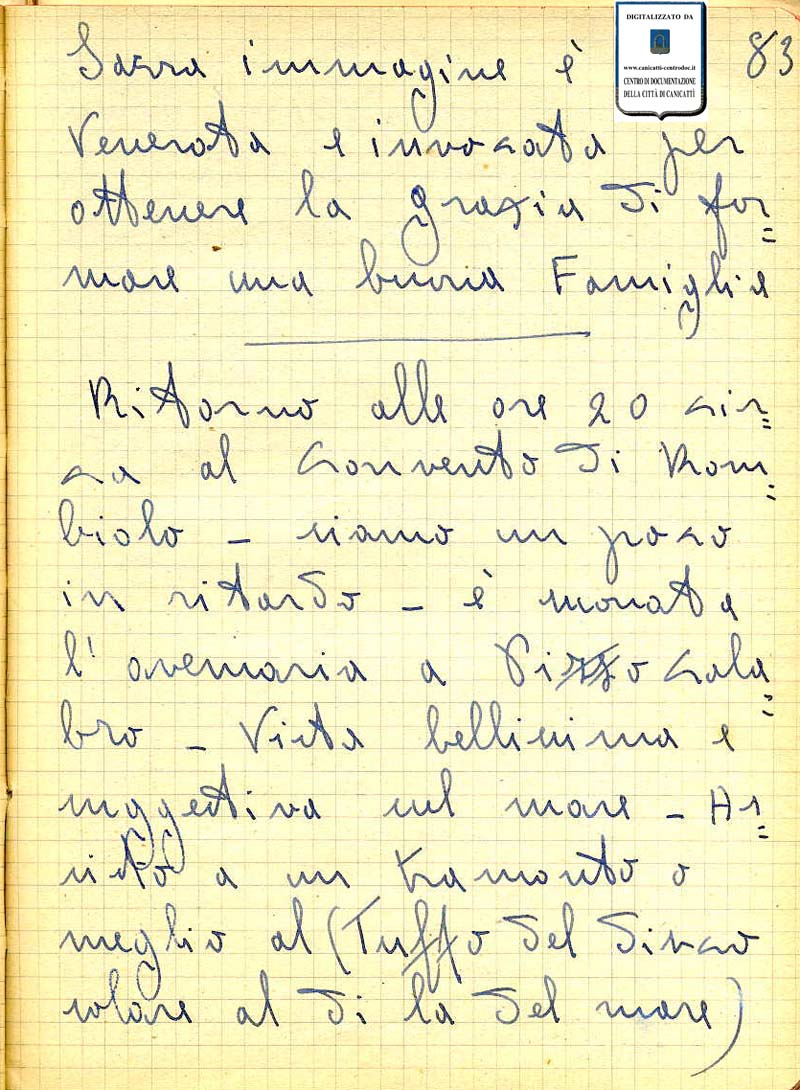 DIGITALIZZATO DA
www.canicatti-centrodoc.it
CENTRO DI DOCUMENTAZIONE
DELLA CITTÀ DI CANICATTÌ
83
Sacra immagine è
Venerata e invocata per
ottenere la grazia di for=
mare una buona Famiglia
Ritorno alle ore 20 cir=
ca al Convento di Rom=
biolo - siamo un poco
in ritardo - è suonata
l'avemaria a Pizzo Cala=
bro - Vista bellissima e
suggestiva sul mare - As=
sisto a un tramonto o
meglio al (Tuffo del disco
solare al di la del mare)